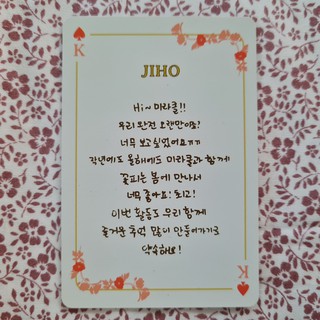 K
JIHO
Hi~ 미라클!!
우리 완전 오랜만이죠?
너무 보고싶었어요ㅠㅠ
작년에도 올해에도 미라클과 함께
꽃피는 봄에 만나서
너무 좋아요! 최고!
이번 활동도 우리 함께
즐거운 추억 많이 만들어가기로
약속해요!
K